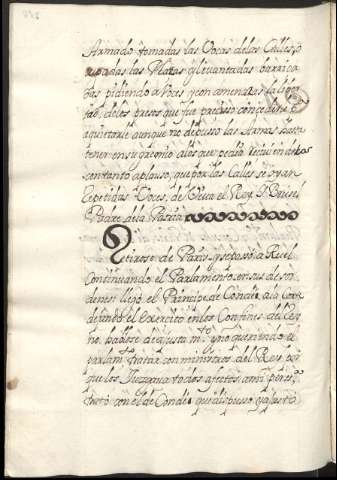 Armado tomadas las Vocas de las Calles, o
cupadas las Plazas y levantadas barrica
das pidiendo a Voces y con amenazas la liber
tad, de los presos que fue preciso concederle
aquietarse aunque no depuso las Armas hasta
tener en su gremio a los que pedia recivien dolos
con tanto aplauso, que por las Calles se oyan
Repetidas Voces, de Viva el Rey, y Brusel
Padre de la Patria
Retirose de Paris y se paso a Ruel
Continuando el Parlamento en sus desor
denes: llegó el Principe de Condé, a la Corte
dejando el Exercito en los Confines del Rey
no. hablose de ajustam.to y no queriendo el
Parlam.to tratar con ministros del Rey, por
que los Juzgava todos afectos a mi
tratò con el de Condé, que dispuso y ajustò